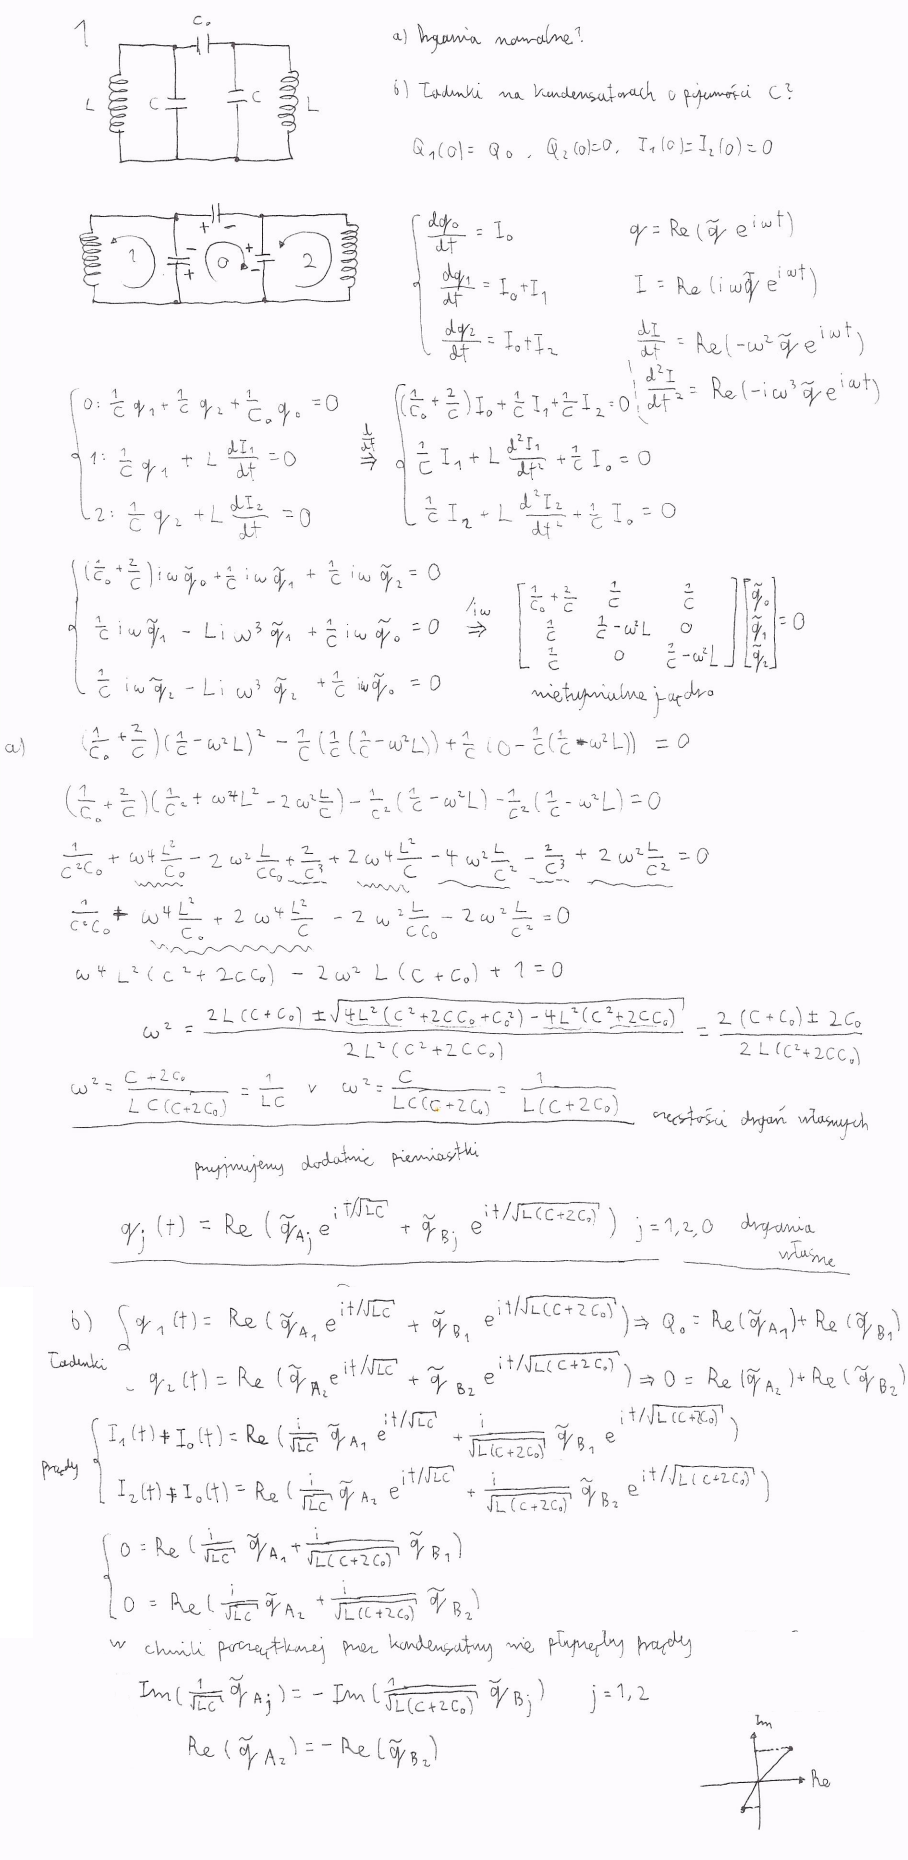 1
C₀
L C C L
a) Drgania normalne?
b) Ładunki na kondensatorach o pojemności C?
Q₁(0)=Q₀, Q₂(0)=0, I₁(0)=I₂(0)=0
+ -
1 - + 0 + - 2
dq₀/dt = I₀
q = Re(q̃ e^{iωt})
dq₁/dt = I₀+I₁
I = Re(iωq̃ e^{iωt})
dq₂/dt = I₀+I₂
dI/dt = Re(-ω² q̃ e^{iωt})
d²I/dt² = Re(-iω³ q̃ e^{iωt})
0: 1/C q₁ + 1/C q₂ + 1/C₀ q₀ = 0 d/dt ⇒ (1/C₀ + 2/C)I₀ + 1/C I₁ + 1/C I₂ = 0
1: 1/C q₁ + L dI₁/dt = 0 1/C I₁ + L d²I₁/dt² + 1/C I₀ = 0
2: 1/C q₂ + L dI₂/dt = 0 1/C I₂ + L d²I₂/dt² + 1/C I₀ = 0
(1/C₀ + 2/C)iω q̃₀ + 1/C iω q̃₁ + 1/C iω q̃₂ = 0
1/C iω q̃₁ - L i ω³ q̃₁ + 1/C iω q̃₀ = 0 /iω ⇒
1/C iω q̃₂ - L i ω³ q̃₂ + 1/C iω q̃₀ = 0
[1/C₀ + 2/C 1/C 1/C] [q̃₀]
[1/C 1/C - ω²L 0] [q̃₁] = 0
[1/C 0 1/C - ω²L] [q̃₂]
nietrywialne jądro
a) (1/C₀ + 2/C)(1/C - ω²L)² - 1/C(1/C(1/C - ω²L)) + 1/C(0 - 1/C(1/C - ω²L)) = 0
(1/C₀ + 2/C)(1/C² + ω⁴L² - 2ω² L/C) - 1/C²(1/C - ω²L) - 1/C²(1/C - ω²L) = 0
1/C²C₀ + ω⁴ L²/C₀ - 2ω² L/CC₀ + 2/C³ + 2ω⁴ L²/C - 4ω² L/C² - 2/C³ + 2ω² L/C² = 0
1/C²C₀ + ω⁴ L²/C₀ + 2ω⁴ L²/C - 2ω² L/CC₀ - 2ω² L/C² = 0
ω⁴L²(C² + 2CC₀) - 2ω²L(C + C₀) + 1 = 0
ω² = 2L(C+C₀) ± √(4L²(C²+2CC₀+C₀²) - 4L²(C²+2CC₀)) / 2L²(C²+2CC₀) = 2(C+C₀) ± 2C₀ / 2L(C²+2CC₀)
ω² = C+2C₀ / LC(C+2C₀) = 1/LC v ω² = C / LC(C+2C₀) = 1 / L(C+2C₀) częstości drgań własnych
przyjmujemy dodatnie pierwiastki
q_j(t) = Re(q̃_{Aj} e^{it/√LC} + q̃_{Bj} e^{it/√L(C+2C₀)}) j=1,2,0 drgania własne
b) q₁(t) = Re(q̃_{A₁} e^{it/√LC} + q̃_{B₁} e^{it/√L(C+2C₀)}) ⇒ Q₀ = Re(q̃_{A1}) + Re(q̃_{B1})
Ładunki
q₂(t) = Re(q̃_{A₂} e^{it/√LC} + q̃_{B₂} e^{it/√L(C+2C₀)}) ⇒ 0 = Re(q̃_{A₂}) + Re(q̃_{B₂})
I₁(t) + I₀(t) = Re(i/√LC q̃_{A₁} e^{it/√LC} + i/√L(C+2C₀) q̃_{B₁} e^{it/√L(C+2C₀)})
prądy
I₂(t) + I₀(t) = Re(i/√LC q̃_{A₂} e^{it/√LC} + i/√L(C+2C₀) q̃_{B₂} e^{it/√L(C+2C₀)})
0 = Re(i/√LC q̃_{A₁} + i/√L(C+2C₀) q̃_{B₁})
0 = Re(i/√LC q̃_{A₂} + i/√L(C+2C₀) q̃_{B₂})
w chwili początkowej przez kondensatory nie płynęły prądy
Im(1/√LC q̃_{Aj}) = - Im(1/√L(C+2C₀) q̃_{Bj}) j=1,2
Re(q̃_{A₂}) = - Re(q̃_{B₂})
Im
Re